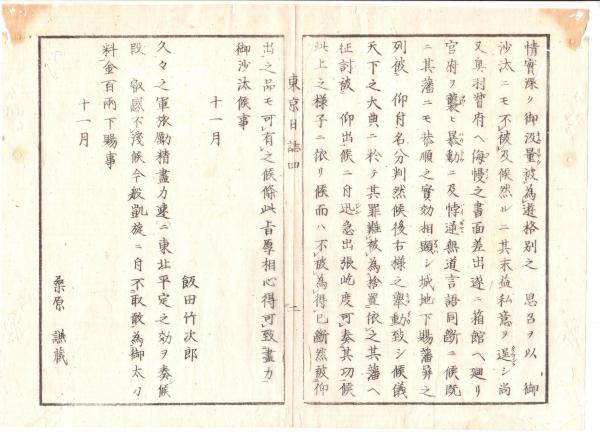 情實深ク御汲量被為遊格別之　思召ヲ以　御
沙汰ニモ不被及候然ルニ其末益私意ヲ逞シ尚
又奥羽督府ヘ侮慢之書面差出遂ニ箱館ヘ廻リ
官府ヲ襲ヒ暴動ニ及悖逆無道言語同斷ニ候既
ニ其藩ニモ恭順之實効相顕シ城地下賜藩屏之
列被　仰付名分判然候後右様之舉動致シ候儀
天下之大典ニ於テ其罪難被為捨置依之其藩ヘ
征討被　仰出候ニ付迅急出張屹度可奏其功候
此上之様子ニ依リ候而ハ不被為得已斷然被仰
東京日誌四
二
出之品モ可有之候條此旨厚相心得可致盡力
御沙汰候事
十一月
飯田竹次郎
久々之軍旅勵精盡力速ニ東北平定之効ヲ奏候
段　叡感不淺候今般凱旋ニ付不取敢為御太刀
料金百兩下賜事
十一月
桑原　譲藏